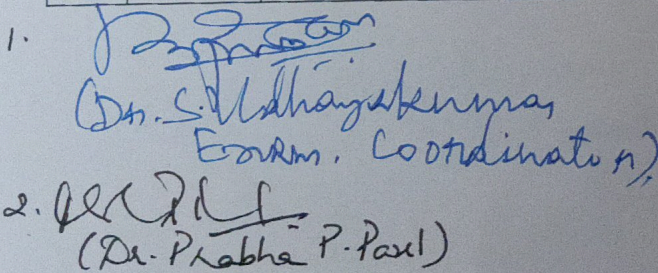 1.
(Dr. S. Udhayakumar
Exam. Coordinator),
2.
(Dr. Prabha P. Patel)